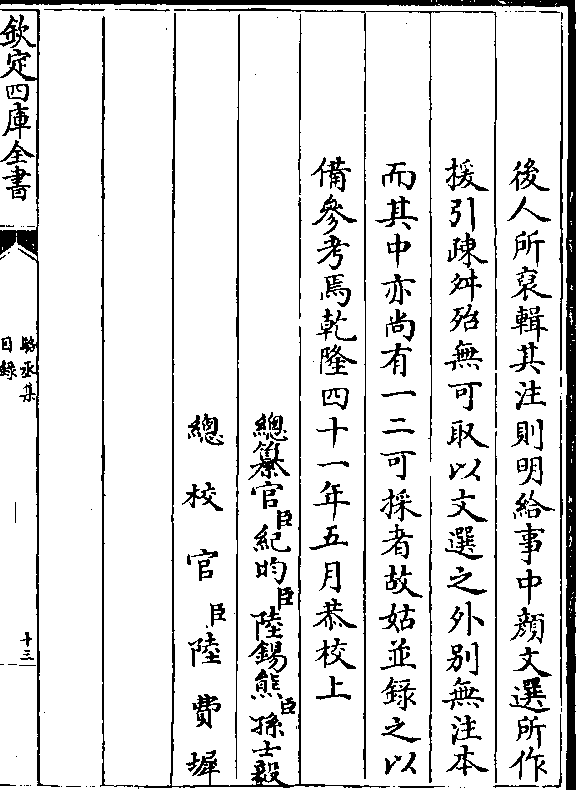 後人所裒輯其注則明給事中顏文選所作
援引疎舛殆無可取以文選之外别無注本
而其中亦尚有一二可採者故姑並錄之以
備參考焉乾隆四十一年五月恭校上
總纂官臣紀昀臣陸錫熊臣孫士毅
總校官臣陸費墀
欽定四庫全書
駱丞集
目錄
十三